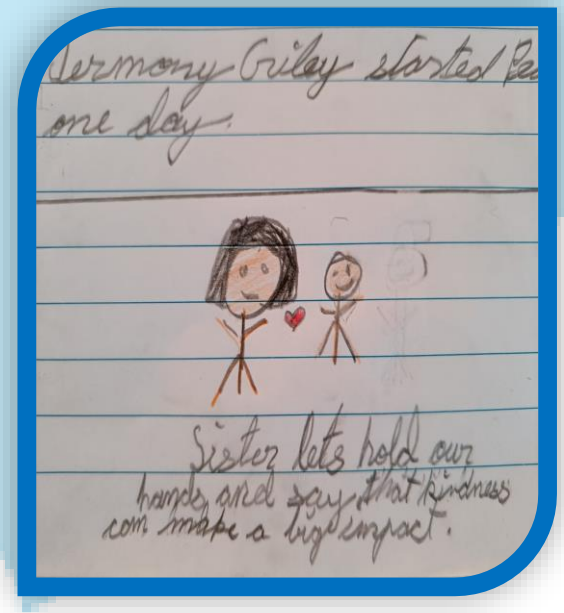 Jermony Griley started
one day.
Sister lets hold our
hands and say that kindness
can make a big impact.